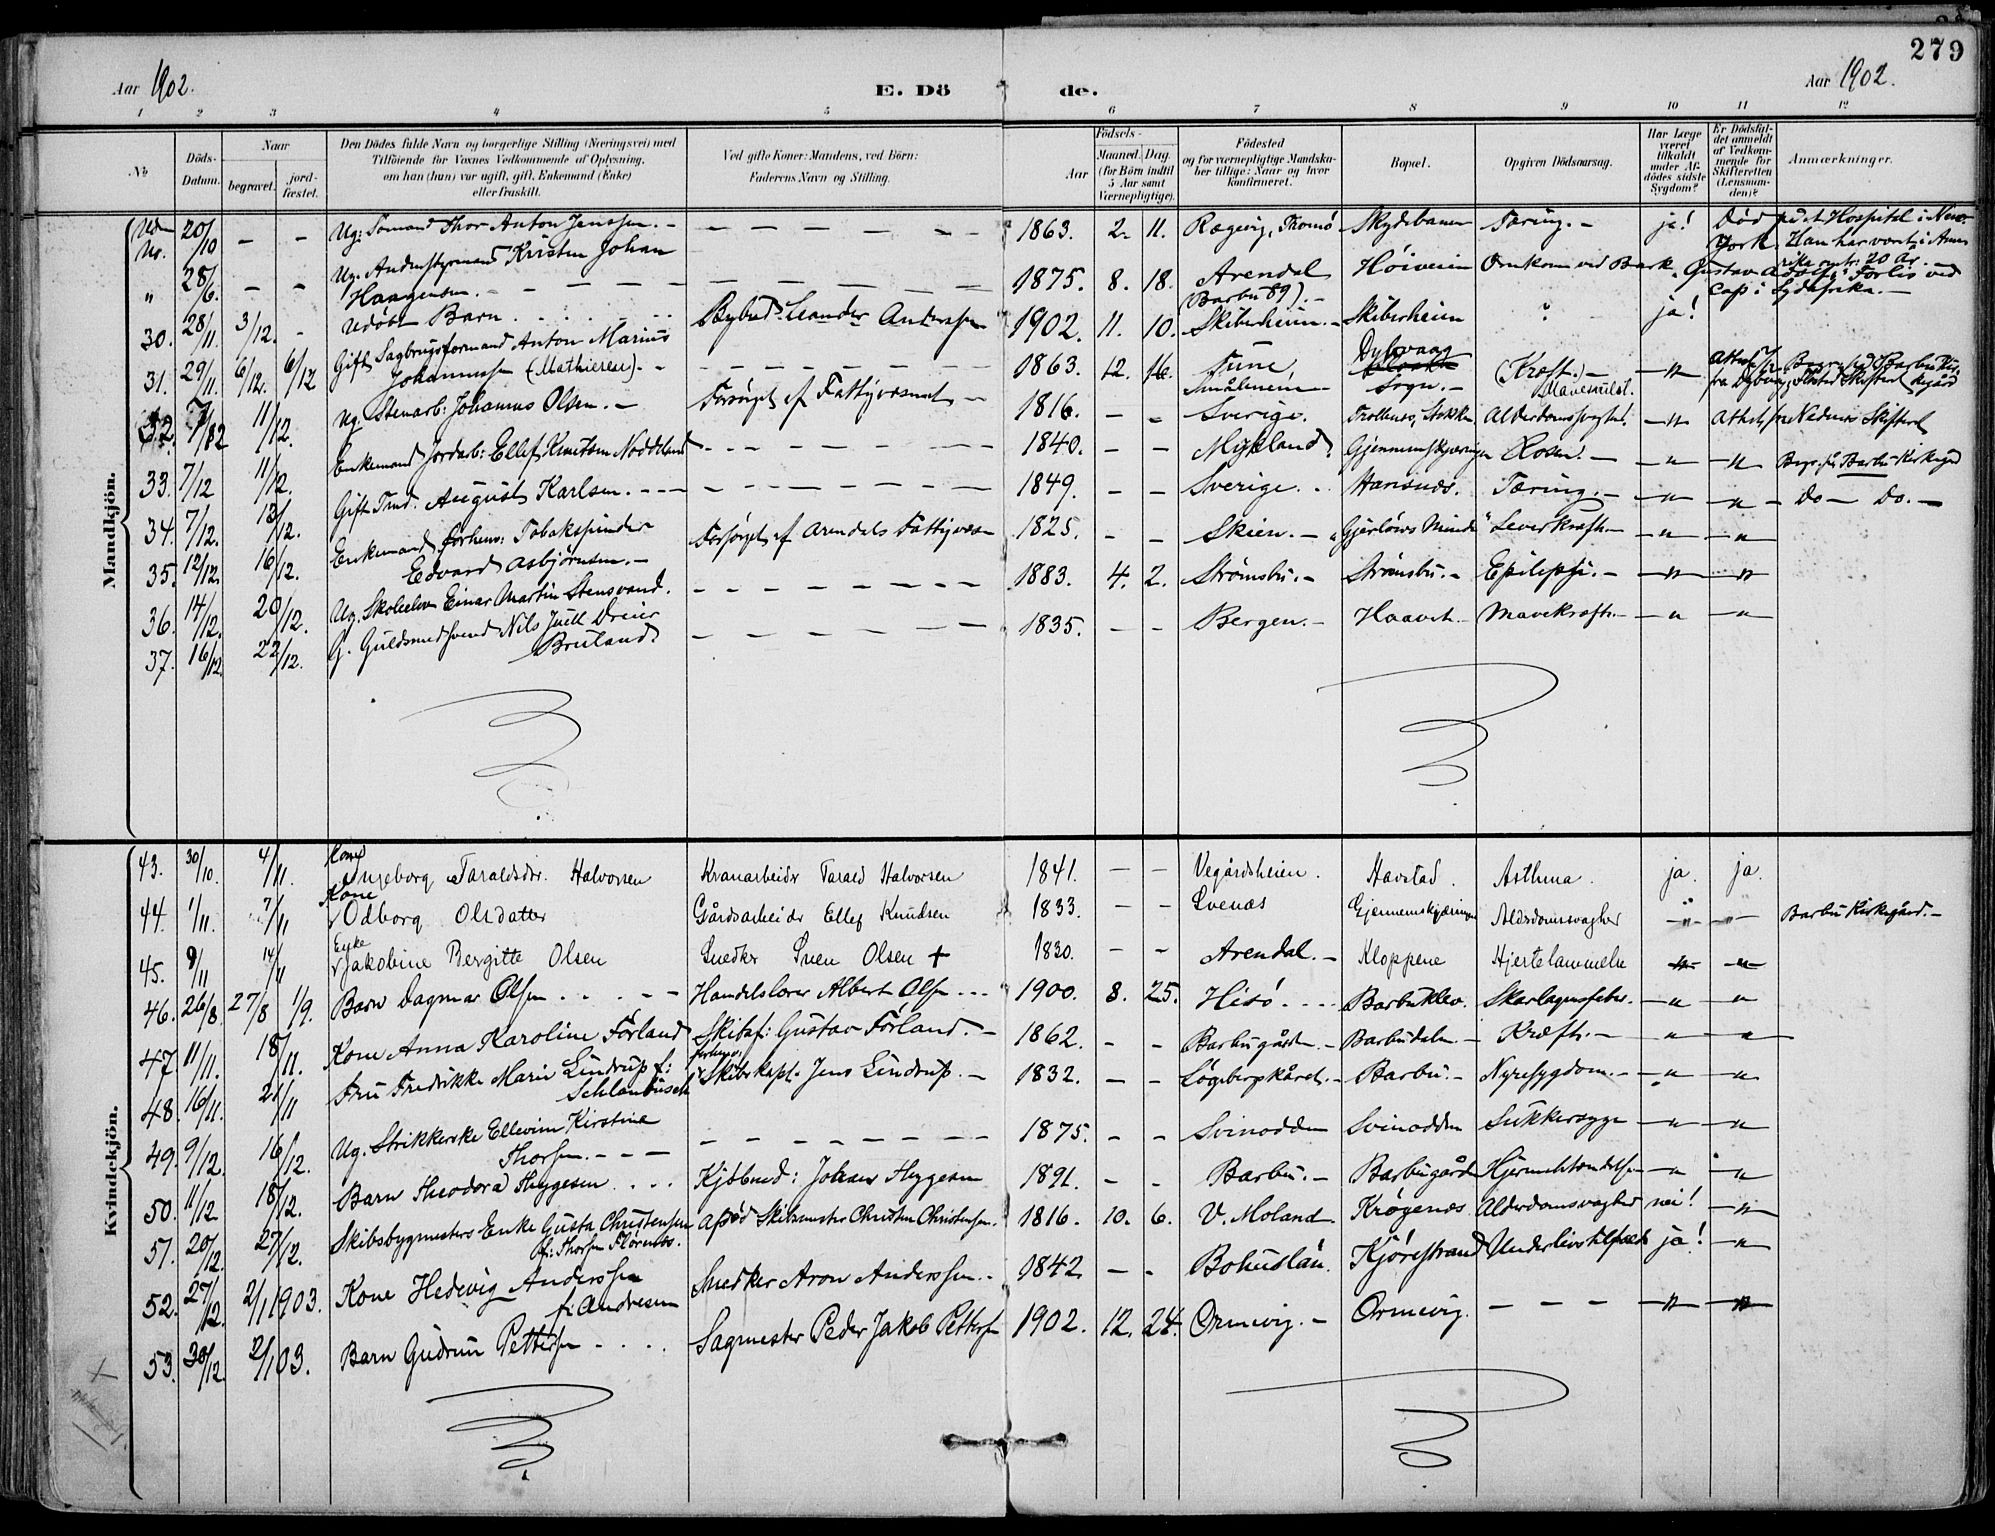 279
Aar 1902.
E. Dö de.
Aar 1902.
1 2 3 4 5 6 7 8 9 10 11 12
No
Döds-Datum.
Naar
begravet. jordfæstet.
Den Dödes fulde Navn og borgerlige Stilling (Næringsvei) med
Tilföiende for Voxnes Vedkommende af Oplysning,
om han (hun) var ugift, gift, Enkemand (Enke)
eller fraskilt.
Ved gifte Koner: Mandens, ved Börn:
Faderens Navn og Stilling.
Födsels-
Aar
Maaned. Dag.
(for Börn indtil
5 Aar samt
Værnepligtige).
Födested
og for værnepligtige Mandskaber tillige: Naar og hvor
konfirmeret.
Bopæl.
Opgiven Dödsaarsag.
Har Læge
været
tilkaldt
under Afdödes sidste
Sygdom?
Er Dödsfaldet anmeldt
af Vedkommende for
Skifteretten
(Lensmanden)?
Anmærkninger.
Mandkjön.
Uden No. 20/10 - - Ug: Sömand Thor Anton Jenssen. - 1863. 2. 11. Rægevig, Tromö Skydebanen Tæring. - ja! Död ved et Hospital i New-York. Han har vært i Amerika omtr. 20 År.
" 28/6. - - Ug. Andenstyrmand Kristen Johan Haagensen. - 1875. 8. 18. Arendal (Barbu 89). - Höiveien Omkom ved Bark "Gustav Adolfs" Forlis ved Cap i Sydafrika. -
30. 28/11. 3/12. - Udöbt Barn Bybud: Leander Anderssen 1902. 11. 10. Skiberheien. - Skiberheien ? ja!
31. 29/11. 6/12. 6/12 Gift Sagbrugsformand Anton Marius Johannessen (Mathiesen). - 1863. 12. 16. Tune Smålenene Dybvaag Sogn. - (Kræft.) - Mavesuldt. - " -
32. 7/12 11/12. Ug. Stenarb: Johannes Olsen. - Forsörget af Fattigvæsnet - 1816. - - Sverige. Trollnes, Stokken Alderdomssvaghed. - " - Attest fra Nedenes Skifteret
33. 7/12 11/12. Enkemand Jordarb: Ellef Knutsen Noddeland 1840. - - Mykland Gjennemskjæringen Rosen. - - " - - " - Begr. på Barbu Kirkegård
34. 7/12. 13/12. Gift Tmd. August Karlsen. 1849. - - Sverige. Havsnæs. Tæring. - - " - - " - Do - Do. -
35. 12/12. 16/12. Enkemand forhenv: Tobakspinder Edvard Asbjörnsen. - Forsörget af Arendals Fattigvæsen 1825. - - Skien. - "Gjerlöws Minde" Leverkræft - - " - - " -
36. 14/12. 20/12. Ug. Skoleelev Einar Martin Stensvand. 1883. 4. 2. Strömsbu. - Strömsbu. - Epilepsi. - - " - - " -
37. 16/12. 22/12. G. Guldsmedsvend Nils Juell Dreier Bruland. 1835. - - Bergen. - Haavet. Mavekræft. - - " - - " -
Kvindekjön.
43. 30/10. 4/11. Kone Ingeborg Taraldsdtr. Halvorsen Kranarbeider Tarald Halvorsen 1841. - - Vegårdsheien. Havstad. Asthma. ja. ja.
44. 1/11. 7/11 Kone Odborg Olsdatter Gårdsarbeider Ellef Knudsen 1833. - - Evenæs Gjennemskjæringen Alderdomssvaghed - " - - " - Barbu Kirkegård. -
45. 9/11 14/11 Enke Jakobine Bergitte Olsen Snedker Sven Olsen + 1830. - - Arendal. - Kloppene Hjertelammelse - " - - " -
46. 26/8. 27/8 1/9. Barn Dagmar Olsen Handelslærer Albert Olsen 1900. 8. 25. Hisö. Barbuklev. Skarlagensfeber. - " - - " -
47. 11/11. 18/11. Kone Anna Karoline Förland Skibsf: Gustav Förland. - 1862. - - Barbugården. - Barbudalen - Kræft. - - " - - " -
48. 16/11. 21/11 Fru Fredrikke Marie Lindrup f: Schlanbusch forhenv: Skibskapt. Jens Lindrup. - 1832. - - Lögebergskåret. - Barbu. - Nyresygdom. - - " - - " -
49. 9/12. 16/12. Ug. Strikkerske Ellevine Kirstine Thorsen. - 1875. - - Svinodden Svinodden Sukkersyge - " - - " -
50. 11/12 18/12. Barn Theodora Thygesen Kjöbmd: Johan Thygesen 1891. - - Barbu. - Barbugården Hjernebetændelse - " - - " -
51. 20/12. 27/12. Skibsbygmesters Enke Gusta Christensen f: Thorsen Flörenes. Afdöd Skibsmester Christen Christensen. 1816. 10. 6. V. Moland Krögenæs Alderdomssvaghed nei! - " -
52. 27/12. 2/1 1903. Kone Hedevig Anderssen f: Andresen Snedker Aron Anderssen. - 1842. - - Bohuslän. Kjörestrand Underlivstilfælde ja! - " -
53. 30/12. 2/1 03. Barn Gudrun Pettersen Sagmester Peder Jakob Pettersen 1902. 12. 24. Ormevig. - Ormevig. - - - - " - - " -